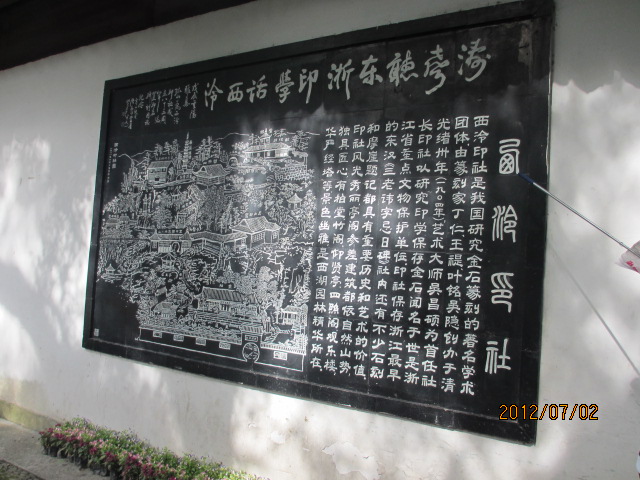 濤聲聽东浙印學話西泠
西泠印社
西泠印社是我国研究金石篆刻的著名学术
团体由篆刻家丁仁王禔叶铭吴隐创办于清
光绪卅年(一九〇四年)艺术大师吴昌硕为首任社
长印社以研究印学保存金石闻名于世是浙
江省重点文物保护单位印社保存浙江最早
的东汉三老讳字忌日碑社内还有不少石刻
和摩崖题记都具有重要历史和艺术的价值
印社风光秀丽亭阁参差建筑都依自然山势
独具匠心有柏堂竹阁仰贤亭四照阁观乐楼
华严经塔等景色幽雅是西湖园林精华所在
2012/07/02